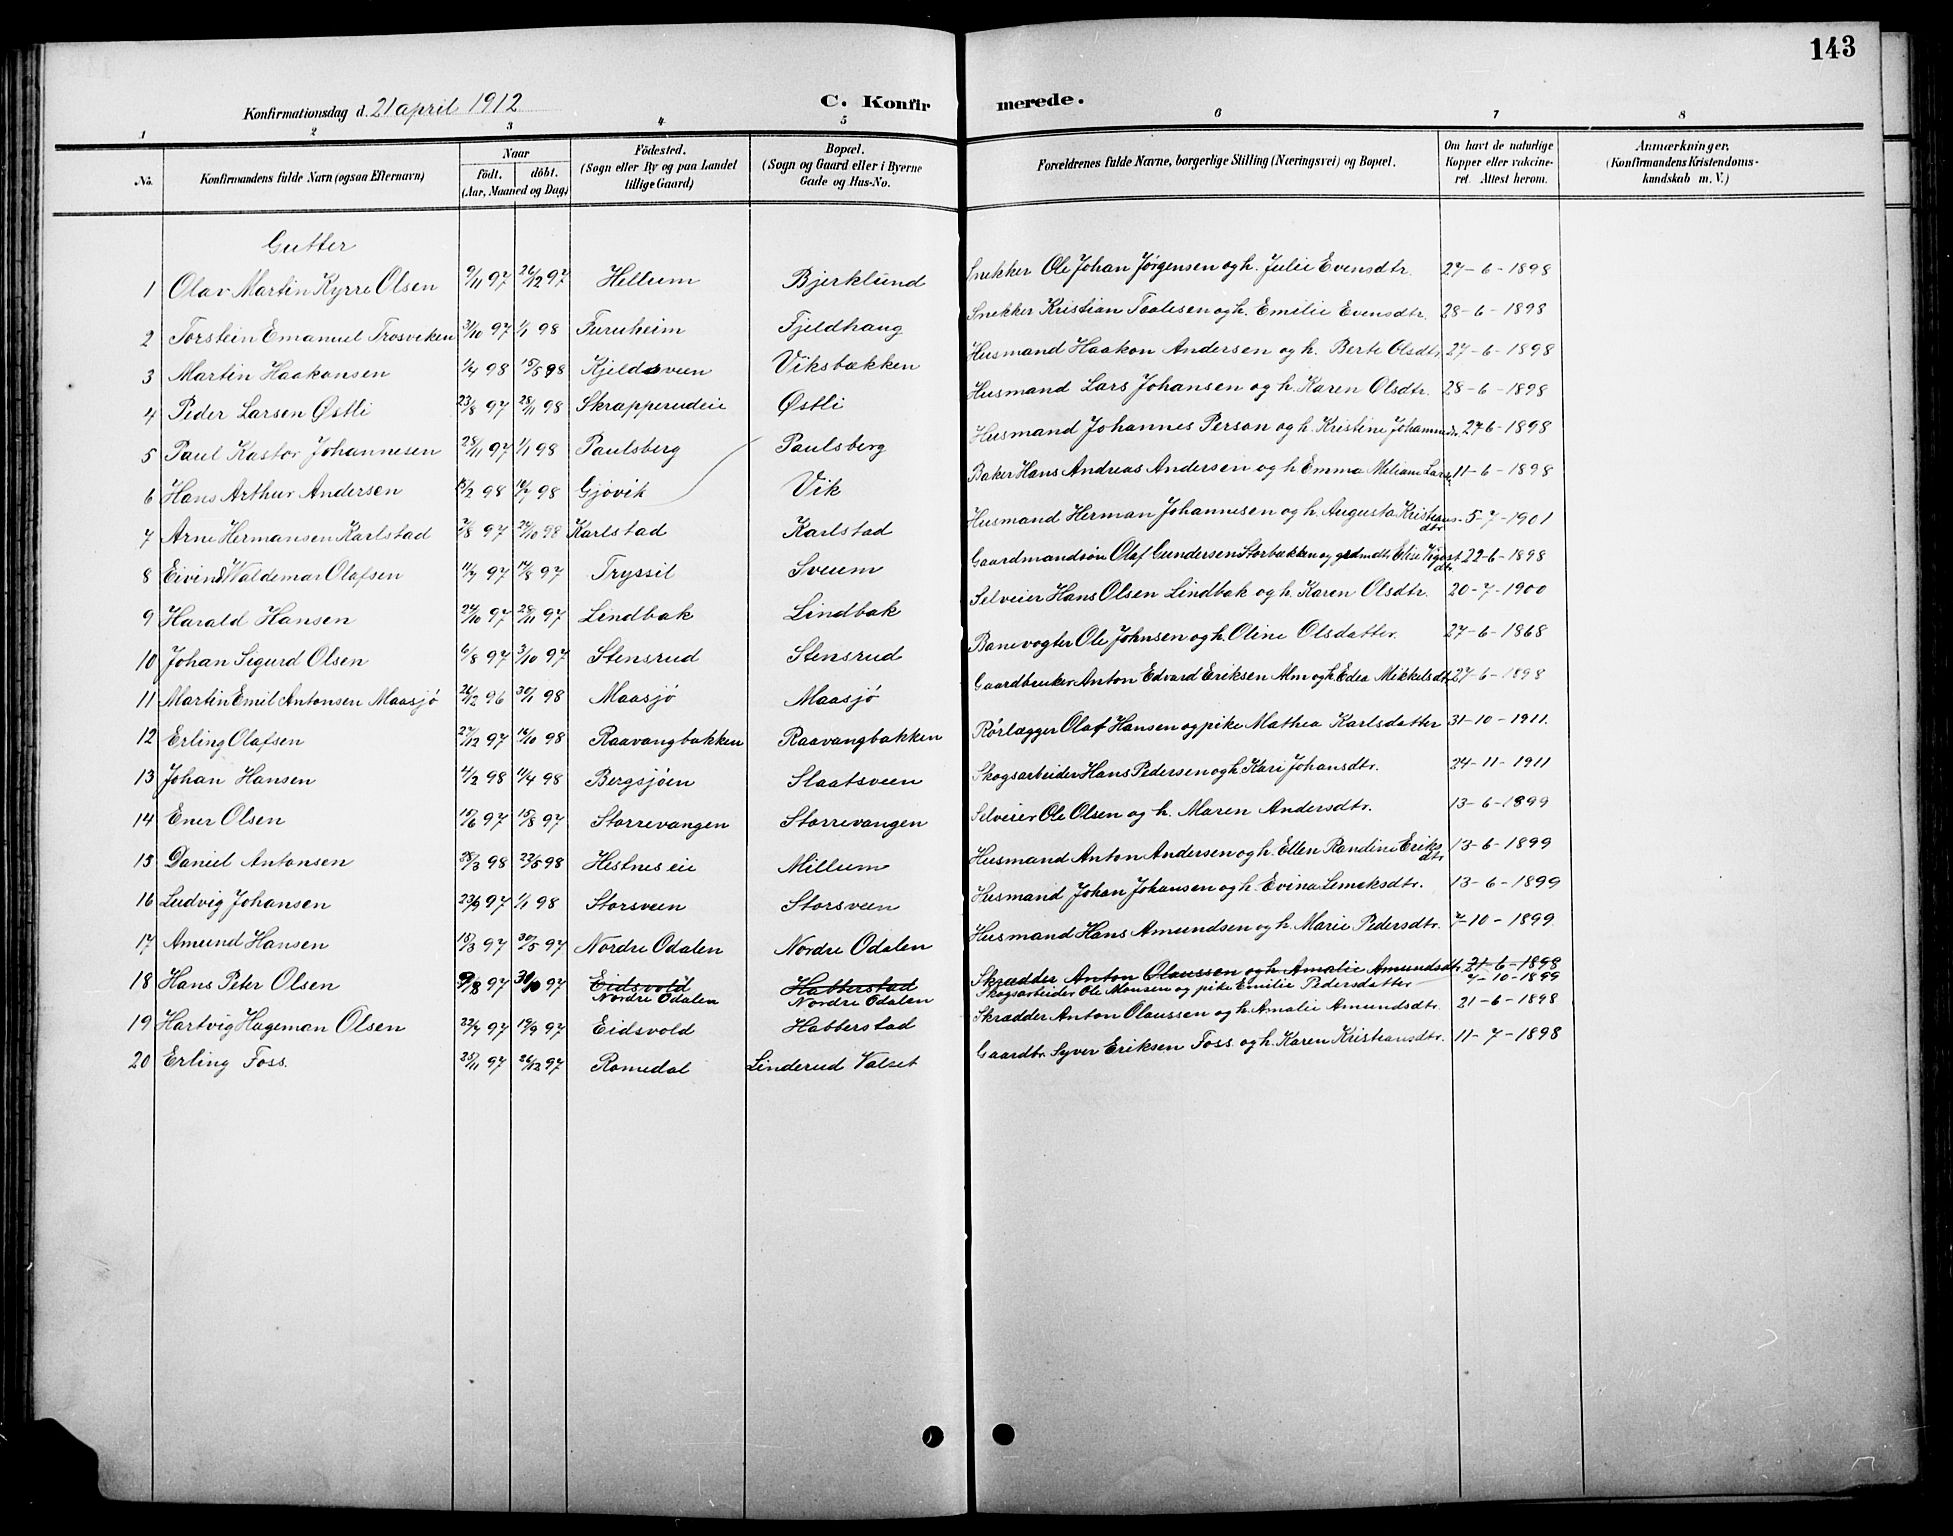 143
Konfirmationsdag d. 21 april 1912
C. Konfirmerede.
1 2 3 4 5 6 7 8
No. Konfirmandens fulde Navn (ogsaa Efternavn) Naar födt. döbt. (Aar, Maaned og Dag) Födested. (Sogn eller By og paa Landet tillige Gaard) Bopæl. (Sogn og Gaard eller i Byerne Gade og Hus-No. Forældrenes fulde Navne, borgerlige Stilling (Næringsvei) og Bopæl. Om havt de naturlige Kopper eller vakcineret. Attest herom. Anmerkninger. (Konfirmandens Kristendomskundskab m. V.)
Gutter
1 Olav Martin Kyrre Olsen 9/11 97 26/12 97 Hellum Bjerklund Snekker Ole Johan Jørgensen og h. Julie Evensdtr. 27-6-1898
2 Torstein Emanuel Trosviken 31/10 97 1/1 98 Furuheim Fjeldhaug Snekker Kristian Taalesen og h. Emilie Evensdtr. 28-6-1898
3 Martin Haakonsen 1/4 98 15/5 98 Kjeldsveen Viksbækken Husmand Haakon Andersen og h. Berte Olsdtr. 27-6-1898
4 Peder Larsen Østli 23/8 97 28/11 98 Skrapperudeie Østli Husmand Lars Johansen og h. Karen Olsdtr. 28-6-1898
5 Paul Kastor Johannesen 28/11 97 1/1 98 Paulsberg Paulsberg Husmand Johannes Person og h. Kristine Johannesdtr. 27-6-1898
6 Hans Arthur Andersen 98 98 Gjövik Vik Baker Hans Andreas Andersen og h. Emma Larsdtr. 11-6-1898
7 Arne Hermansen Karlstad 97 98 Karlstad Karlstad Husmand Herman Johannesen og h. Augusta Kristiansdtr. 5-7-1901
8 Eivind Valdemar Olafsen 11/7 97 97 Tryssil Sveum Gaardmandsön Olaf Gundersen Storbækken og grdmdtr. Elise 22-6-1898
9 Harald Hansen 24/10 97 28/11 97 Lindbak Lindbak Selveier Hans Olsen Lindbak og h. Karen Olsdtr. 20-7-1900
10 Johan Sigurd Olsen 6/8 97 3/10 97 Stensrud Stensrud Banevogter Ole Johnsen og h. Oline Olsdatter. 27-6-1868
11 Martin Emil Antonsen Maasjö 26/12 96 30/1 98 Maasjö Maasjö Gaardbruker Anton Edvard Eriksen Alm og h. Edea Mikkelsdtr. 27-6-1898
12 Erling Olafsen 27/12 97 16/10 98 Raavangbakken Raavangbakken Rörlægger Olaf Hansen og pike Mathea Karlsdatter 31-10-1911.
13 Johan Hansen 98 11/4 98 Bergsjöen Slaatsveen Skogsarbeider Hans Pedersen og h. Kari Johansdtr. 24-11-1911
14 Ener Olsen 97 15/8 97 Storrevangen Storrevangen Selveier Ole Olsen og h. Maren Andersdtr. 13-6-1899
15 Daniel Antonsen 28/3 98 22/5 98 Hestnes eie Millum Husmand Anton Andersen og h. Ellen Randine Eriksdtr. 13-6-1899
16 Ludvig Johansen 23/9 97 1/1 98 Storsveen Storsveen Husmand Johan Johansen og h. Evina Lemeksdtr. 13-6-1899
17 Amund Hansen 18/3 97 30/5 97 Nordre Odalen Nordre Odalen Husmand Hans Amundsen og h. Marie Pedersdtr. 7-10-1899
18 Hans Peter Olsen 97 97 Eidsvold Habberstad Skrædder Anton Olaussen og h. Amalie Amundsdtr. 21-6-1898
Nordre Odalen Nordre Odalen Skogsarbeider Ole Monsen og pike Emilie Pedersdatter 7-10-1899
19 Hartvig Hageman Olsen 22/7 97 19/9 97 Eidsvold Habberstad Skrædder Anton Olaussen og h. Amalie Amundsdtr. 21-6-1898
20 Erling Foss. 25/11 97 26/12 97 Romedal Linderud Valset Gaardbr. Syver Eriksen Foss. og h. Karen Kristiansdtr. 11-7-1898